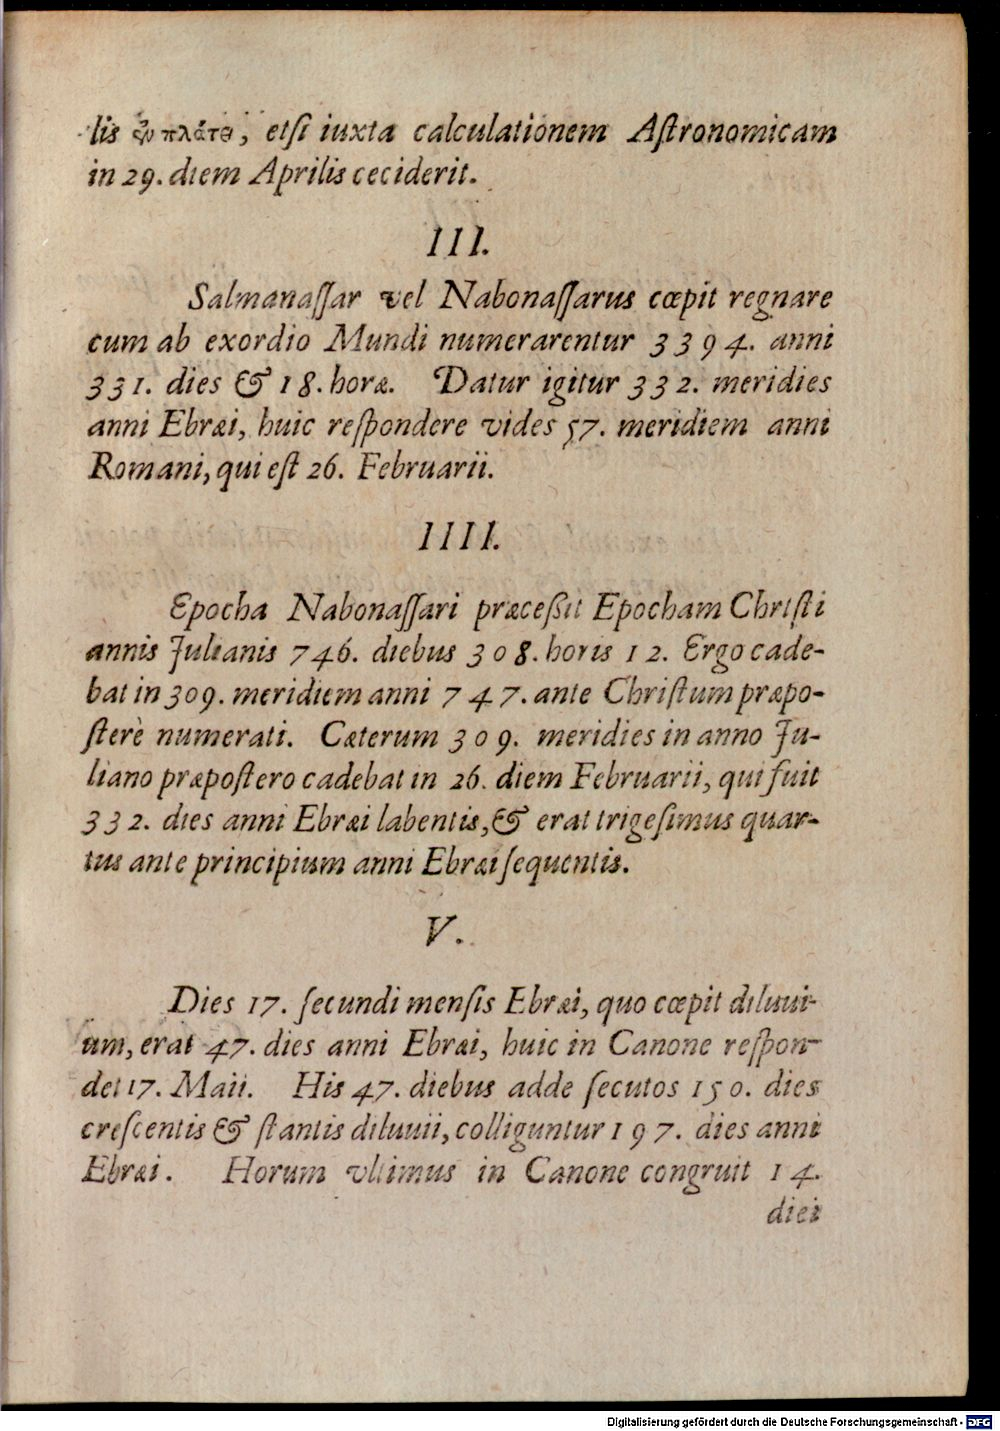 lis ἐν πλάτει, etſi iuxta calculationem Aſtronomicam
in 29. diem Aprilis ceciderit.
III.
Salmanaſſar vel Nabonaſſarus cœpit regnare
cum ab exordio Mundi numerarentur 3394. anni
331. dies & 18. horæ. Datur igitur 332. meridies
anni Ebræi, huic reſpondere vides 57. meridiem anni
Romani, qui eſt 26. Februarii.
IIII.
Epocha Nabonaſſari præceßit Epocham Chriſti
annis Julianis 746. diebus 308. horis 12. Ergo cade-
bat in 309. meridiem anni 747. ante Chriſtum præpo-
ſterè numerati. Cæterum 309. meridies in anno Ju-
liano præpoſtero cadebat in 26. diem Februarii, qui fuit
332. dies anni Ebræi labentis, & erat trigeſimus quar-
tus ante principium anni Ebræi ſequentis.
V.
Dies 17. ſecundi menſis Ebræi, quo cœpit diluui-
um, erat 47. dies anni Ebræi, huic in Canone reſpon-
det 17. Maii. His 47. diebus adde ſecutos 150. dies
creſcentis & ſtantis diluuii, colliguntur 197. dies anni
Ebræi. Horum vltimus in Canone congruit 14.
diei
Digitalisierung gefördert durch die Deutsche Forschungsgemeinschaft - DFG